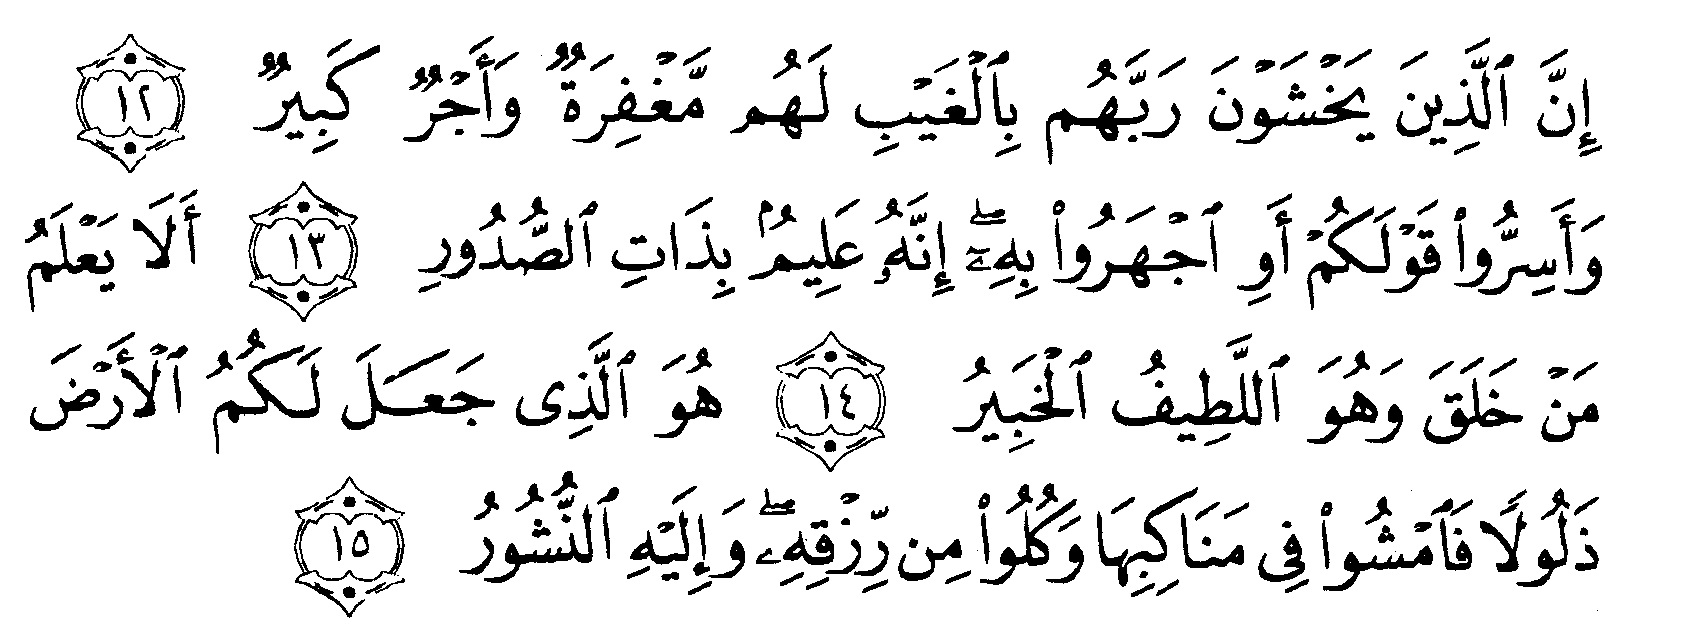 إِنَّ ٱلَّذِينَ يَخْشَوْنَ رَبَّهُم بِٱلْغَيْبِ لَهُم مَّغْفِرَةٌ وَأَجْرٌ كَبِيرٌ ١٢
وَأَسِرُّوا۟ قَوْلَكُمْ أَوِ ٱجْهَرُوا۟ بِهِۦٓ ۖ إِنَّهُۥ عَلِيمٌۢ بِذَاتِ ٱلصُّدُورِ ١٣ أَلَا يَعْلَمُ
مَنْ خَلَقَ وَهُوَ ٱللَّطِيفُ ٱلْخَبِيرُ ١٤ هُوَ ٱلَّذِى جَعَلَ لَكُمُ ٱلْأَرْضَ
ذَلُولًا فَٱمْشُوا۟ فِى مَنَاكِبِهَا وَكُلُوا۟ مِن رِّزْقِهِۦ ۖ وَإِلَيْهِ ٱلنُّشُورُ ١٥